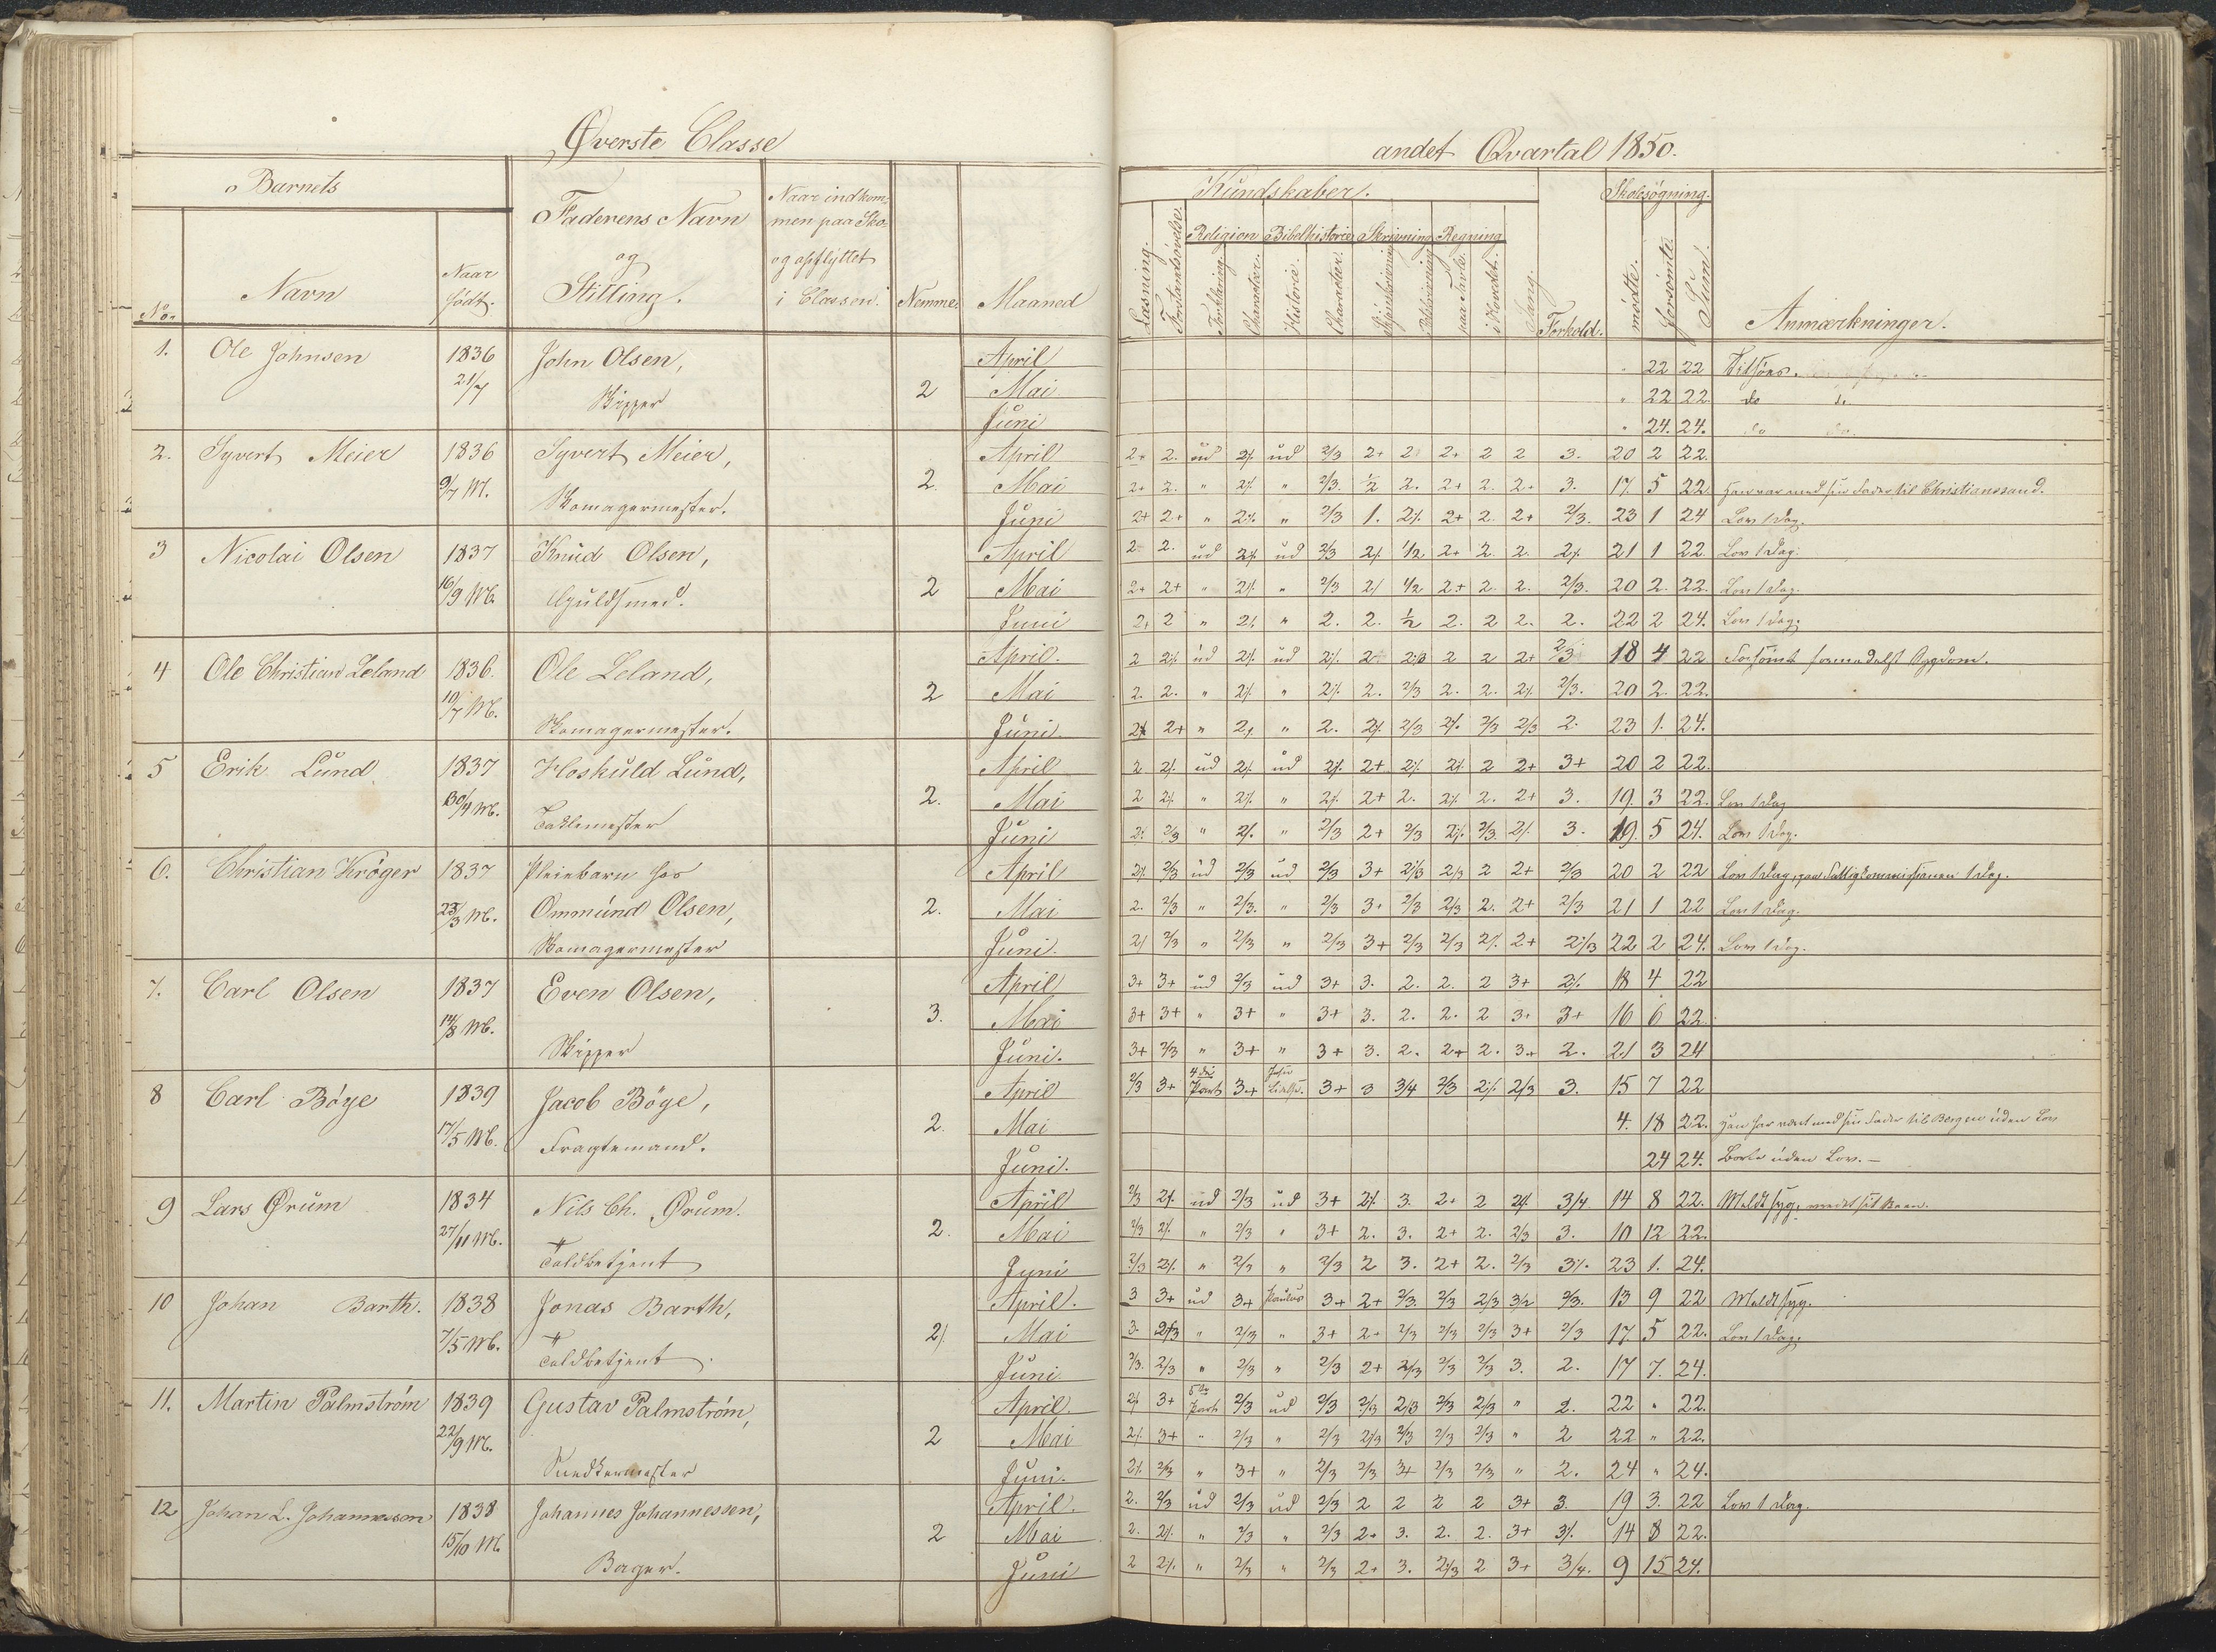 Øverste Classe
andet Qvartal 1850.
Barnets
No.
Navn
Naar
födt.
Faderens Navn
og
Stilling.
Naar indkom-
men paa Sko-
og opflyttet
i Classen.
Nemme.
Maaned
Kundskaber.
Læsning.
Forstandsøvelse.
Religion Bibelhistorie Skrivning Regning
Forklaring.
Character.
Historie.
Character.
Skjönskrivning
Retskrivning
paa Tavle.
i Hovedet.
Sang.
Forhold.
Skolesögning.
mødte.
forsömte.
Sum.
Anmærkninger.
1. Ole Johnsen 1836 John Olsen, April " 22 22
21/7 Skipper 2 Mai " 22 22 do do
Juni " 24. 24. do do.
2. Syvert Meier 1836 Syvert Meier, April 2+ 2. ud 2% ud 2/3 2+ 2 2+ 2 2 3. 20 2 22.
9/7 M. Skomagermester. 2. Mai 2+ 2. " 2% " 2/3. 1/2 2. 2+ 2. 2+ 3. 17. 5 22 Han var med sin Fader til Christianssand.
Juni 2+ 2+ " 2% " 2/3 1. 2% 2+ 2. 2+ 2/3. 23 1 24 Lov 1 Dag.
3 Nicolai Olsen 1837 Knud Olsen, April 2. 2. ud 2% ud 2/3 2% 1/2 2+ 2. 2. 2% 21 1 22 Lov 1 Dag.
16/9 M. Guldsmed. 2 Mai 2+ 2+ " 2% " 2/3 2% 1/2 2+ 2. 2. 2/3. 20 2. 22. Lov 1 Dag.
Juni 2+ 2 " 2% " 2. 2. 1/2 2. 2 2. 2. 22 2 24. Lov 1 Dag.
4 Ole Christian Leland 1836. Ole Leland, April. 2 2% ud 2% ud 2% 2 2/3 2 2 2+ 2/3 18 4 22 Forsömt formedelst Sygdom.
10/7 M. Skomagermester. 2 Mai 2. 2. " 2% " 2% 2. 2/3 2. 2. 2% 2/3. 20 2. 22.
Juni 2% 2+ " 2% " 2. 2% 2/3 2% 2/3 2/3 2. 23 1. 24.
5 Erik Lund 1837 Hoskuld Lund, April 2 2% ud 2% ud 2% 2+ 2% 2% 2 2+ 3+ 20 2 22.
30/4 M. Taklemester 2. Mai 2 2% " 2% " 2% 2+ 2. 2% 2. 2+ 3. 19. 3 22. Lov 1 Dag
Juni 2% 2/3 " 2%. " 2/3 2+ 2/3 2% 2/3. 2% 3. 19. 5 24. Lov 1 Dag.
6. Christian Kröger 1837 Pleiebarn hos April 2% 2/3 ud 2/3 ud 2/3 3+ 2/3 2/3 2 2+ 2/3 20 2 22 Lov 1 Dag, paa Fattigkommissionen 1 Dag.
23/3 M. Ommund Olsen, 2. Mai 2. 2/3 " 2/3. " 2/3 3+ 2/3 2/3 2. 2+ 2/3 21 1 22 Lov 1 Dag.
Skomagermester Juni. 2% 2/3 " 2/3 " 2/3 3+ 2/3 2/3 2% 2+ 2/3 22 2 24. Lov 1 Dag.
7. Carl Olsen 1837 Even Olsen, April 3+ 3+ ud 2/3 ud 3+ 3. 2. 2. 2 3+ 2% 18 4 22
14/8 M. Skipper 3. Mai 3+ 3+ " 3+ " 3+ 3. 2. 2. 2 3+ 3+ 16 6 22.
Juni. 3+ 2/3 " 3+ " 3+ 3. 2. 2+ 2. 3+ 2. 21 3 24
8 Carl Böge 1839 Jacob Böge, April 2/3 3+ 4de Part 3+ 3+ 3 3/4 2/3 2% 2/3 3. 15 7 22
17/5 M. Fragtemand. 2. Mai 4. 18 22. Han har været med sin Fader til Bergen uden Lov
Juni. 24 24. Borte uden Lov. —
9 Lars Ørum 1834 Nils Ch. Ørum. April 2/3 2% ud 2/3 ud 3+ 2% 3. 2+ 2 2% 3/4 14 8 22. Meldt syg,
27/11 M. Toldbetjent 2. Mai 2/3 2% " 2/3 " 3+ 2. 3. 2+ 2. 2/3 3. 10 12 22.
Juni 2/3 2% " 2/3 " 2/3 2 3. 2+ 2. 2/3 3%. 23 1. 24.
10 Johan Barth. 1838 Jonas Barth, April. 3 3+ ud 3+ Paulus 3+ 2+ 2/3. 2/3 2/3 3/2 2/3. 13 9 22 Meldt syg.
7/5 M. Toldbetjent. 2% Mai 3. 2/3 " 2/3 " 3+ 2+ 2/3 2/3 2/3 3+ 2/3 17. 5 22. Lov 1 Dag.
Juni 2/3. 2/3 " 2/3 " 2/3 2+ 2/3 2/3 2/3 3. 2. 17 7. 24.
11. Martin Palmström 1839 Gustav Palmström, April 2% 3+ 5te Part 2/3 ud 2/3 2/3 2/3 2/3 2/3 " 2. 22 " 22.
22/9 M. Snedkermester 2 Mai 2% 3+ " 2/3 " 2/3 2/3 2/3 2/3 2/3 " 2 22 " 22.
Juni. 2% 2/3 " 3+ " 2/3 2/3 3+ 2/3 2/3 " 2. 24 " 24.
12 Johan L. Johannesson 1838 Johannes Johannessen, April. 2. 2/3 ud 2/3 ud 2/3 2 2 2 2 3+ 3. 19 3. 22 Lov 1 Dag.
15/10 M. Bager. 2 Mai 2. 2% " 2/3 " 2/3 2+ 3. 2. 2. 3+ 3% 14 8 22.
Juni 2 2% " 2/3 " 2/3 2+ 3. 2/3 2 3+ 3/4. 9 15 24.